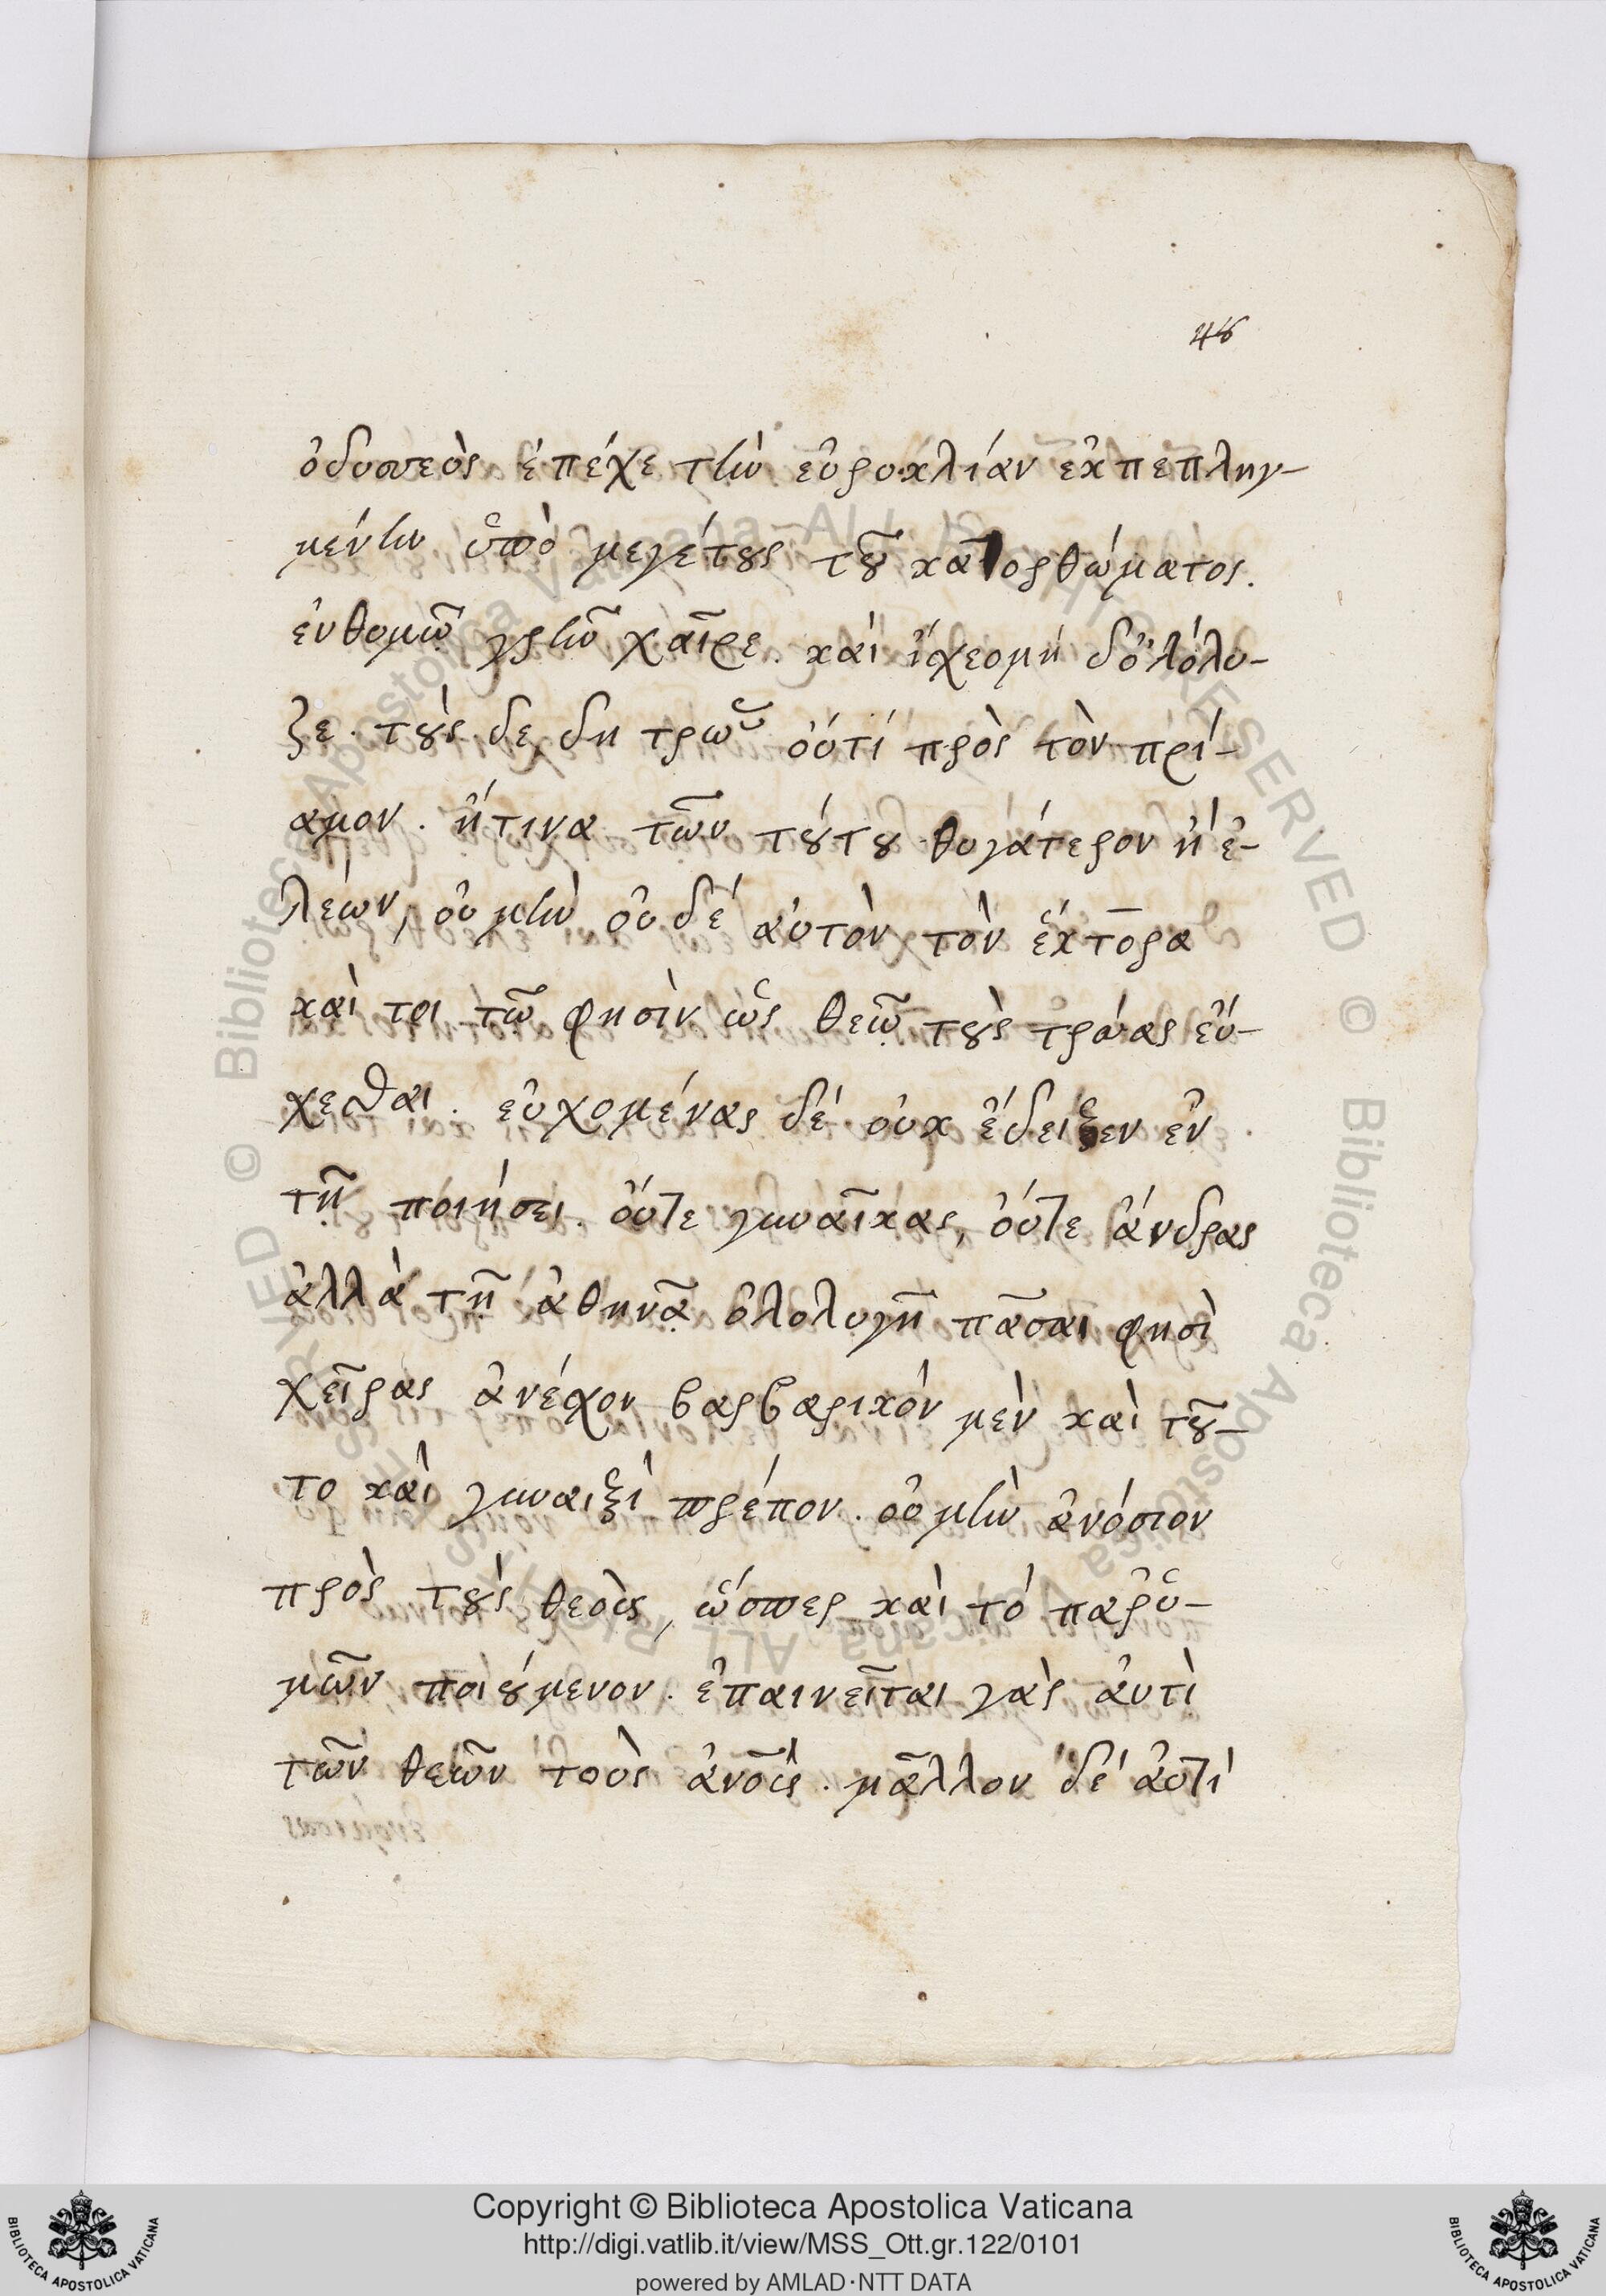 46
ὀδυσσεὺς ἐπέχε τὴν εὐρυκλίαν ἐκπεπληγ-
μένην ὑπὸ μεγέτους τοῦ κατορθώματος.
ἐνθυμῶ γρῆν χαῖρε. καὶ ἴχεομὴ δ' ὀλόλυ-
ζε. τοὺς δε δη τρω οὐτί πρὸς τὸν πρί-
αμον. ἤτινα τῶν τούτου θυγάτερον ἢ ἐ-
λεων, οὐ μὴν οὐδέ αὐτὸν τὸν ἕκτορα
καὶ τρι τῷ φησὶν ὡς θεῷ τοὺς τρώας εὔ-
χεσθαι. εὐχομένας δέ οὐκ ἔδειξεν ἐν
τῇ ποιήσει. οὔτε γυναῖκας, οὔτε ἄνδρας
ἀλλὰ τῇ ἀθηνᾷ ὀλολυγῇ πᾶσαι φησὶ
χεῖρας ἀνέχον βαρβαρικόν μὲν καὶ τοῦ-
το καὶ γυναιξὶ πρέπον. οὐ μὴν ἀνόσιον
πρὸς τοὺς θεοὺς, ὥσπερ καὶ τό παρ' ὑ-
μῶν ποιούμενον. ἐπαινεῖται γὰρ ἀντὶ
τῶν θεῶν τοὺς ἀνοῖς. μᾶλλον δέ ἀντί
Copyright © Biblioteca Apostolica Vaticana
http://digi.vatlib.it/view/MSS_Ott.gr.122/0101
powered by AMLAD·NTT DATA
BIBLIOTECA APOSTOLICA VATICANA
BIBLIOTECA APOSTOLICA VATICANA